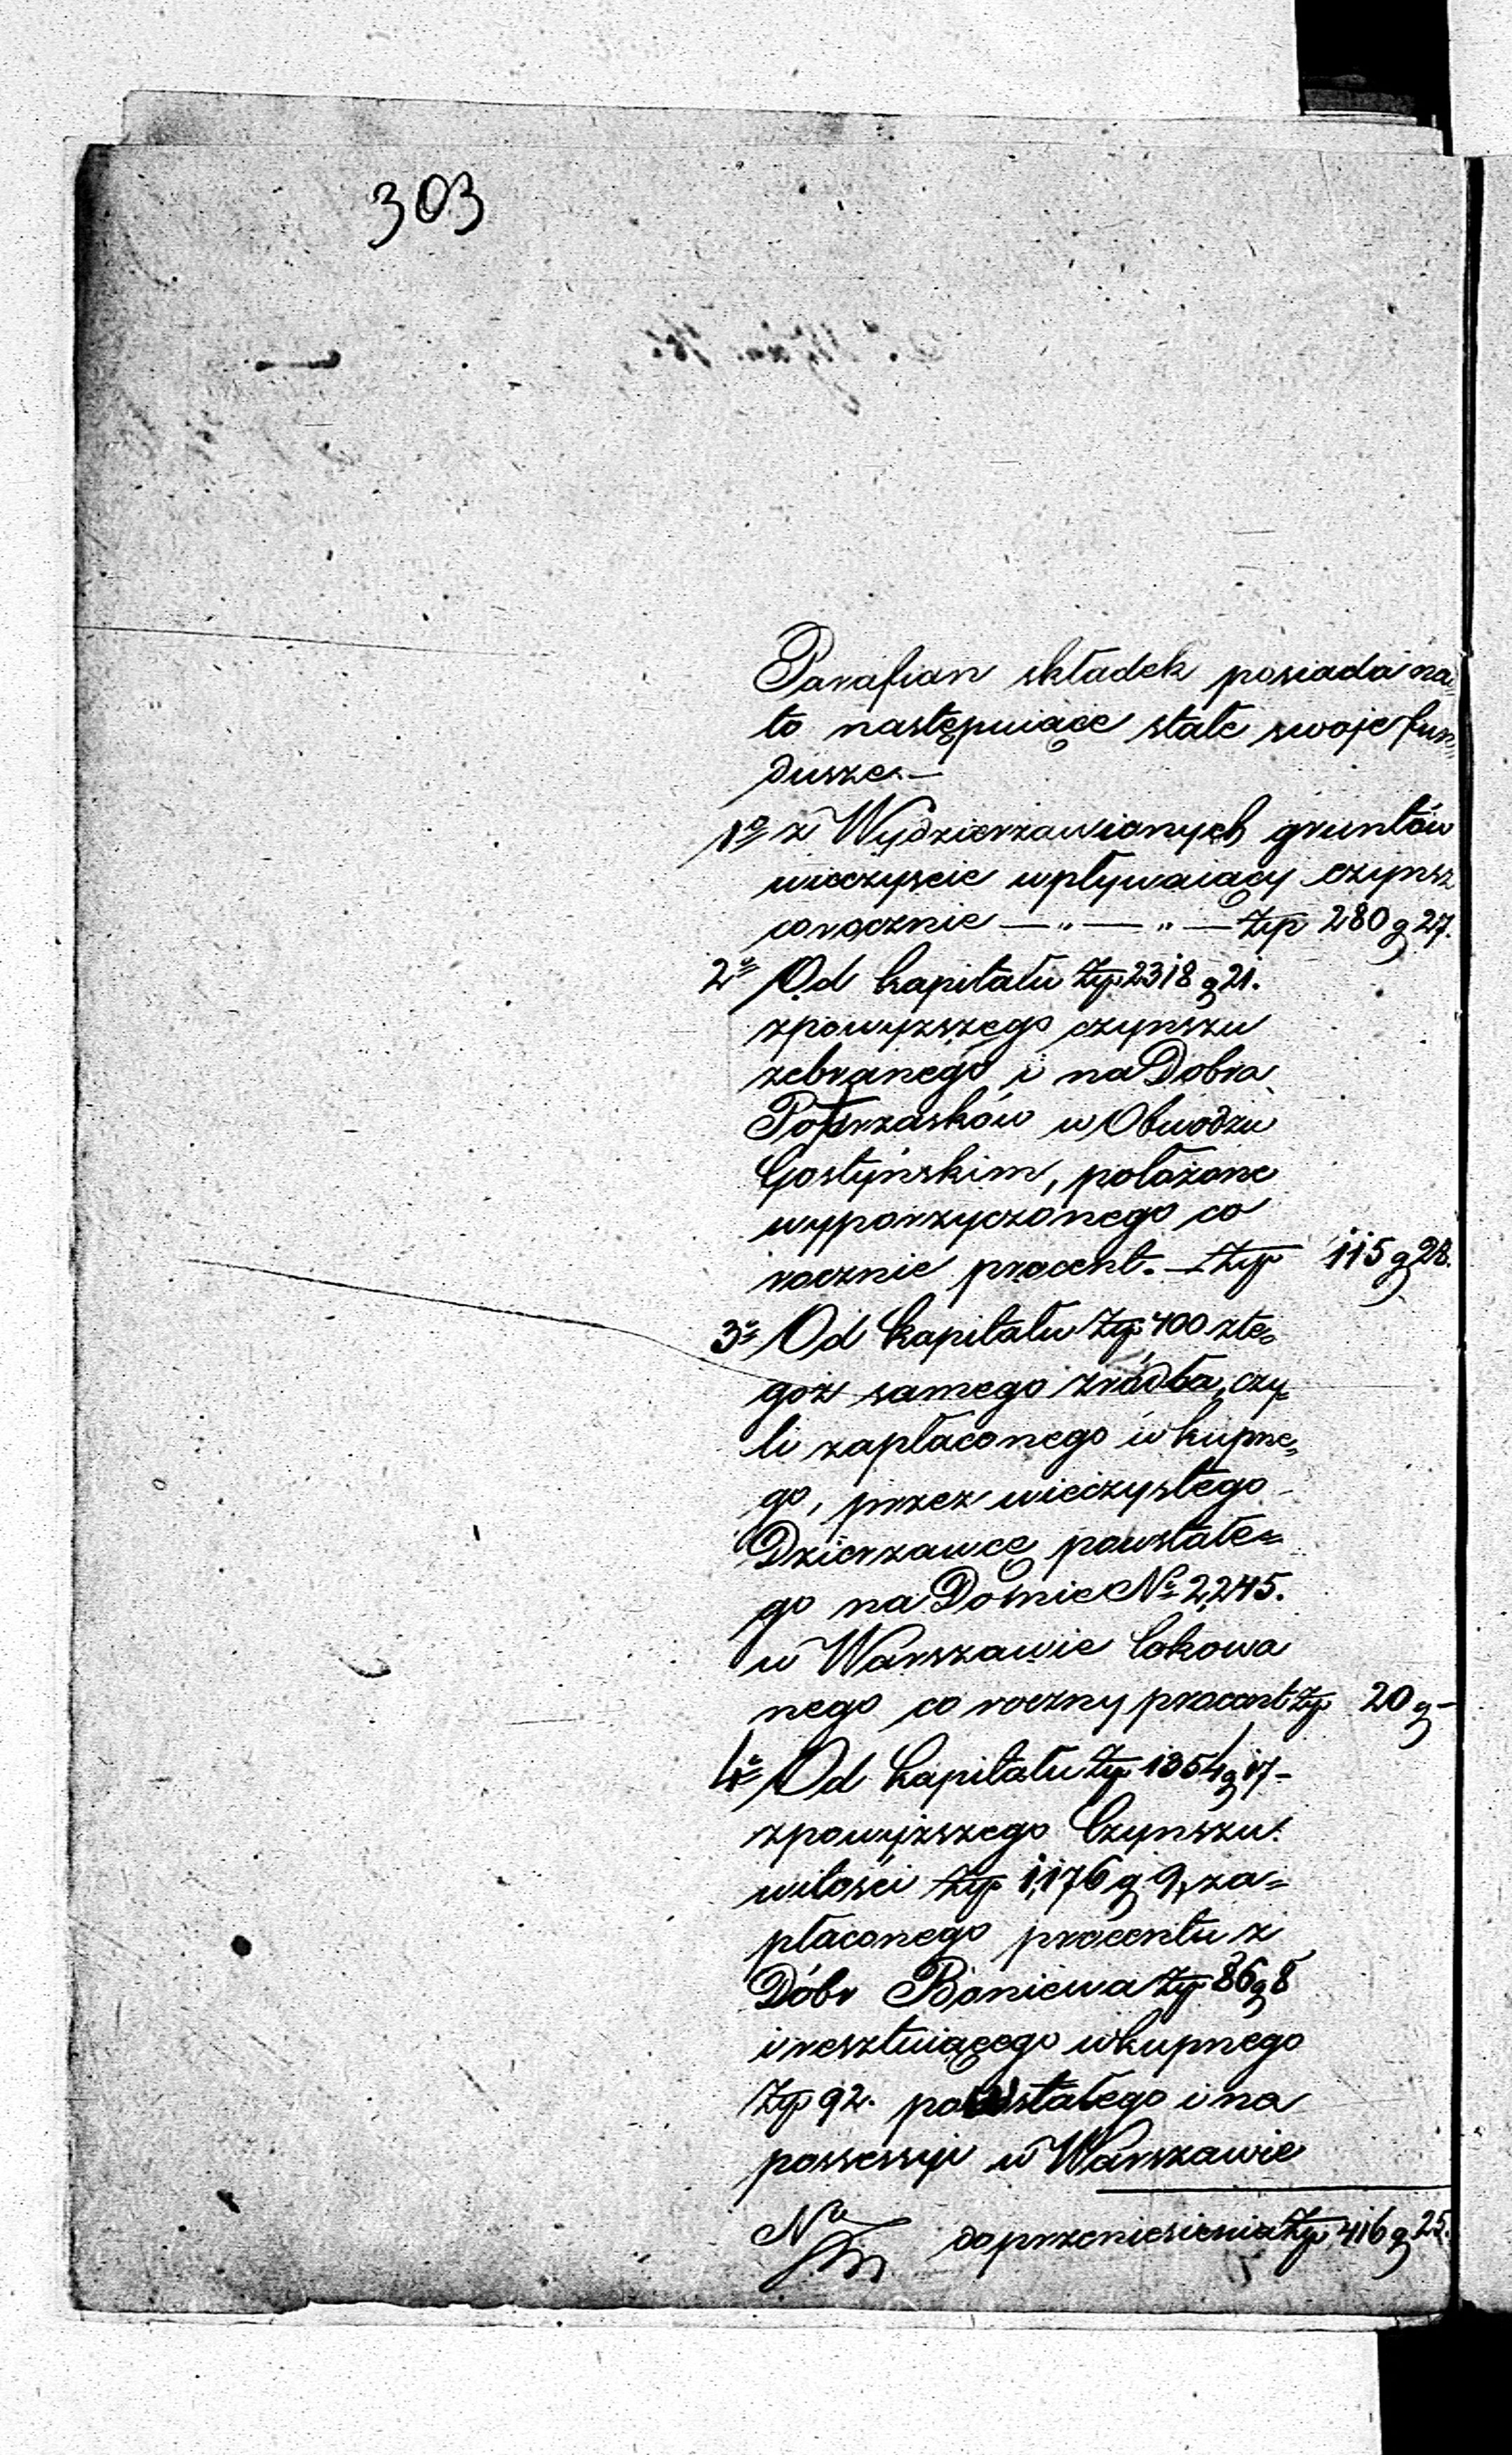 303
Parafian składek posiada na
to następuiące stałe swoje fun
dusze.—
1º z Wydzierzawionych gruntów
wieczyscie wpływaiący czynsz
corocznie — „ — „ — Złp 280 g 27.
2º Od kapitału Złp 2318 g 21.
zpowyzszego czynszu
zebranego i na Dobra
w Obwodzie
Gostyńskim, położone
wyporzyczonego co
rocznie procent. — Złp 115 g 28.
3º Od kapitału Złp 400 zte=
goż samego zródła, czy=
li zapłaconego wkupne=
go, przez wieczystego
Dzierzawcę powstałe=
go na Domie Nº 2,245.
w Warszawie lokowa
nego co roczny procent Złp 20 g –
4º Od kapitału Złp 1354 g 17 –
zpowyższego Czynszu
wilości Złp 1,176 g 9, za=
płaconego procentu z
Dóbr Boniewa Złp 86 g 8
i resztuiącego wkupnego
Złp 92. powstałego i na
possessyi w Warszawie
Nº do przeniesienia Złp 416 g 25.